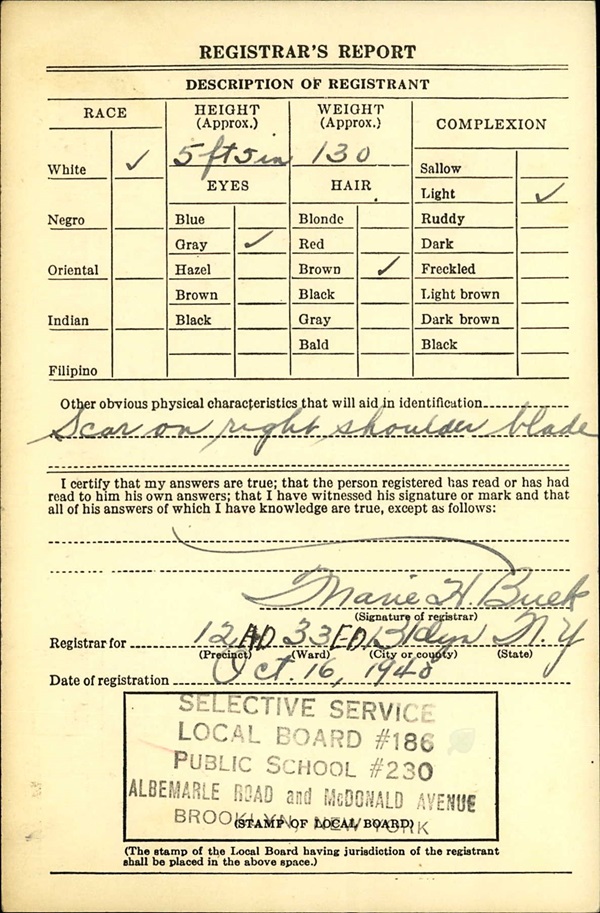 REGISTRAR'S REPORT
DESCRIPTION OF REGISTRANT
RACE
HEIGHT (Approx.)
WEIGHT (Approx.)
COMPLEXION
5 ft 5 in
130
White ✓
Negro
Oriental
Indian
Filipino
EYES
Blue
Gray ✓
Hazel
Brown
Black
HAIR
Blonde
Red
Brown ✓
Black
Gray
Bald
Sallow
Light ✓
Ruddy
Dark
Freckled
Light brown
Dark brown
Black
Other obvious physical characteristics that will aid in identification
Scar on right shoulder blade
I certify that my answers are true; that the person registered has read or has had
read to him his own answers; that I have witnessed his signature or mark and that
all of his answers of which I have knowledge are true, except as follows:
Marie H. Buek
(Signature of registrar)
Registrar for 12 AD 33 ED Bklyn N.Y
(Precinct) (Ward) (City or county) (State)
Date of registration Oct. 16, 1940
SELECTIVE SERVICE
LOCAL BOARD #186
PUBLIC SCHOOL #230
ALBEMARLE ROAD and McDONALD AVENUE
BROOKLYN, NEW YORK
(STAMP OF LOCAL BOARD)
(The stamp of the Local Board having jurisdiction of the registrant
shall be placed in the above space.)